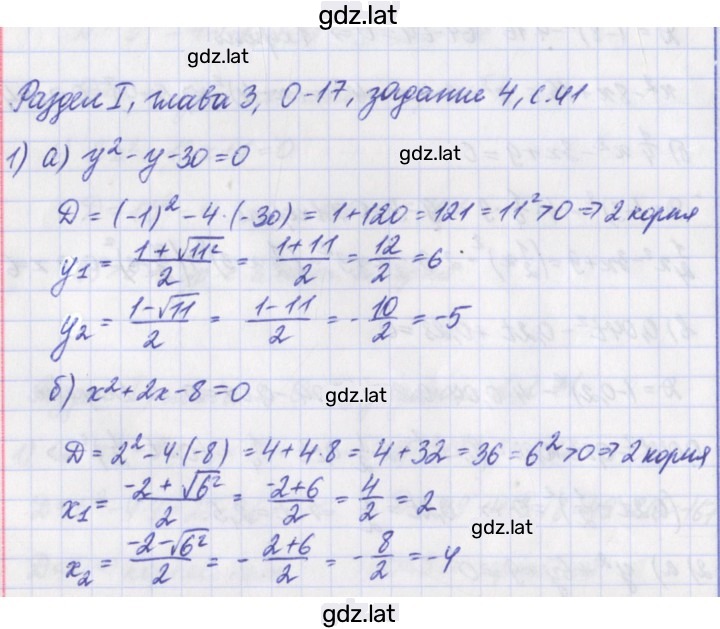 gdz.lat
gdz.lat
Раздел I, глава 3, О-17, задание 4, с.41
1) а) y² - y - 30 = 0
gdz.lat
D = (-1)² - 4·(-30) = 1+120 = 121 = 11² > 0 ⇒ 2 корня
y₁ = (1+√11²)/2 = (1+11)/2 = 12/2 = 6
y₂ = (1-√11)/2 = (1-11)/2 = -10/2 = -5
б) x² + 2x - 8 = 0
gdz.lat
D = 2² - 4·(-8) = 4+4·8 = 4+32 = 36 = 6² > 0 ⇒ 2 корня
x₁ = (-2+√6²)/2 = (-2+6)/2 = 4/2 = 2
gdz.lat
x₂ = (-2-√6²)/2 = -(2+6)/2 = -8/2 = -4
gdz.lat